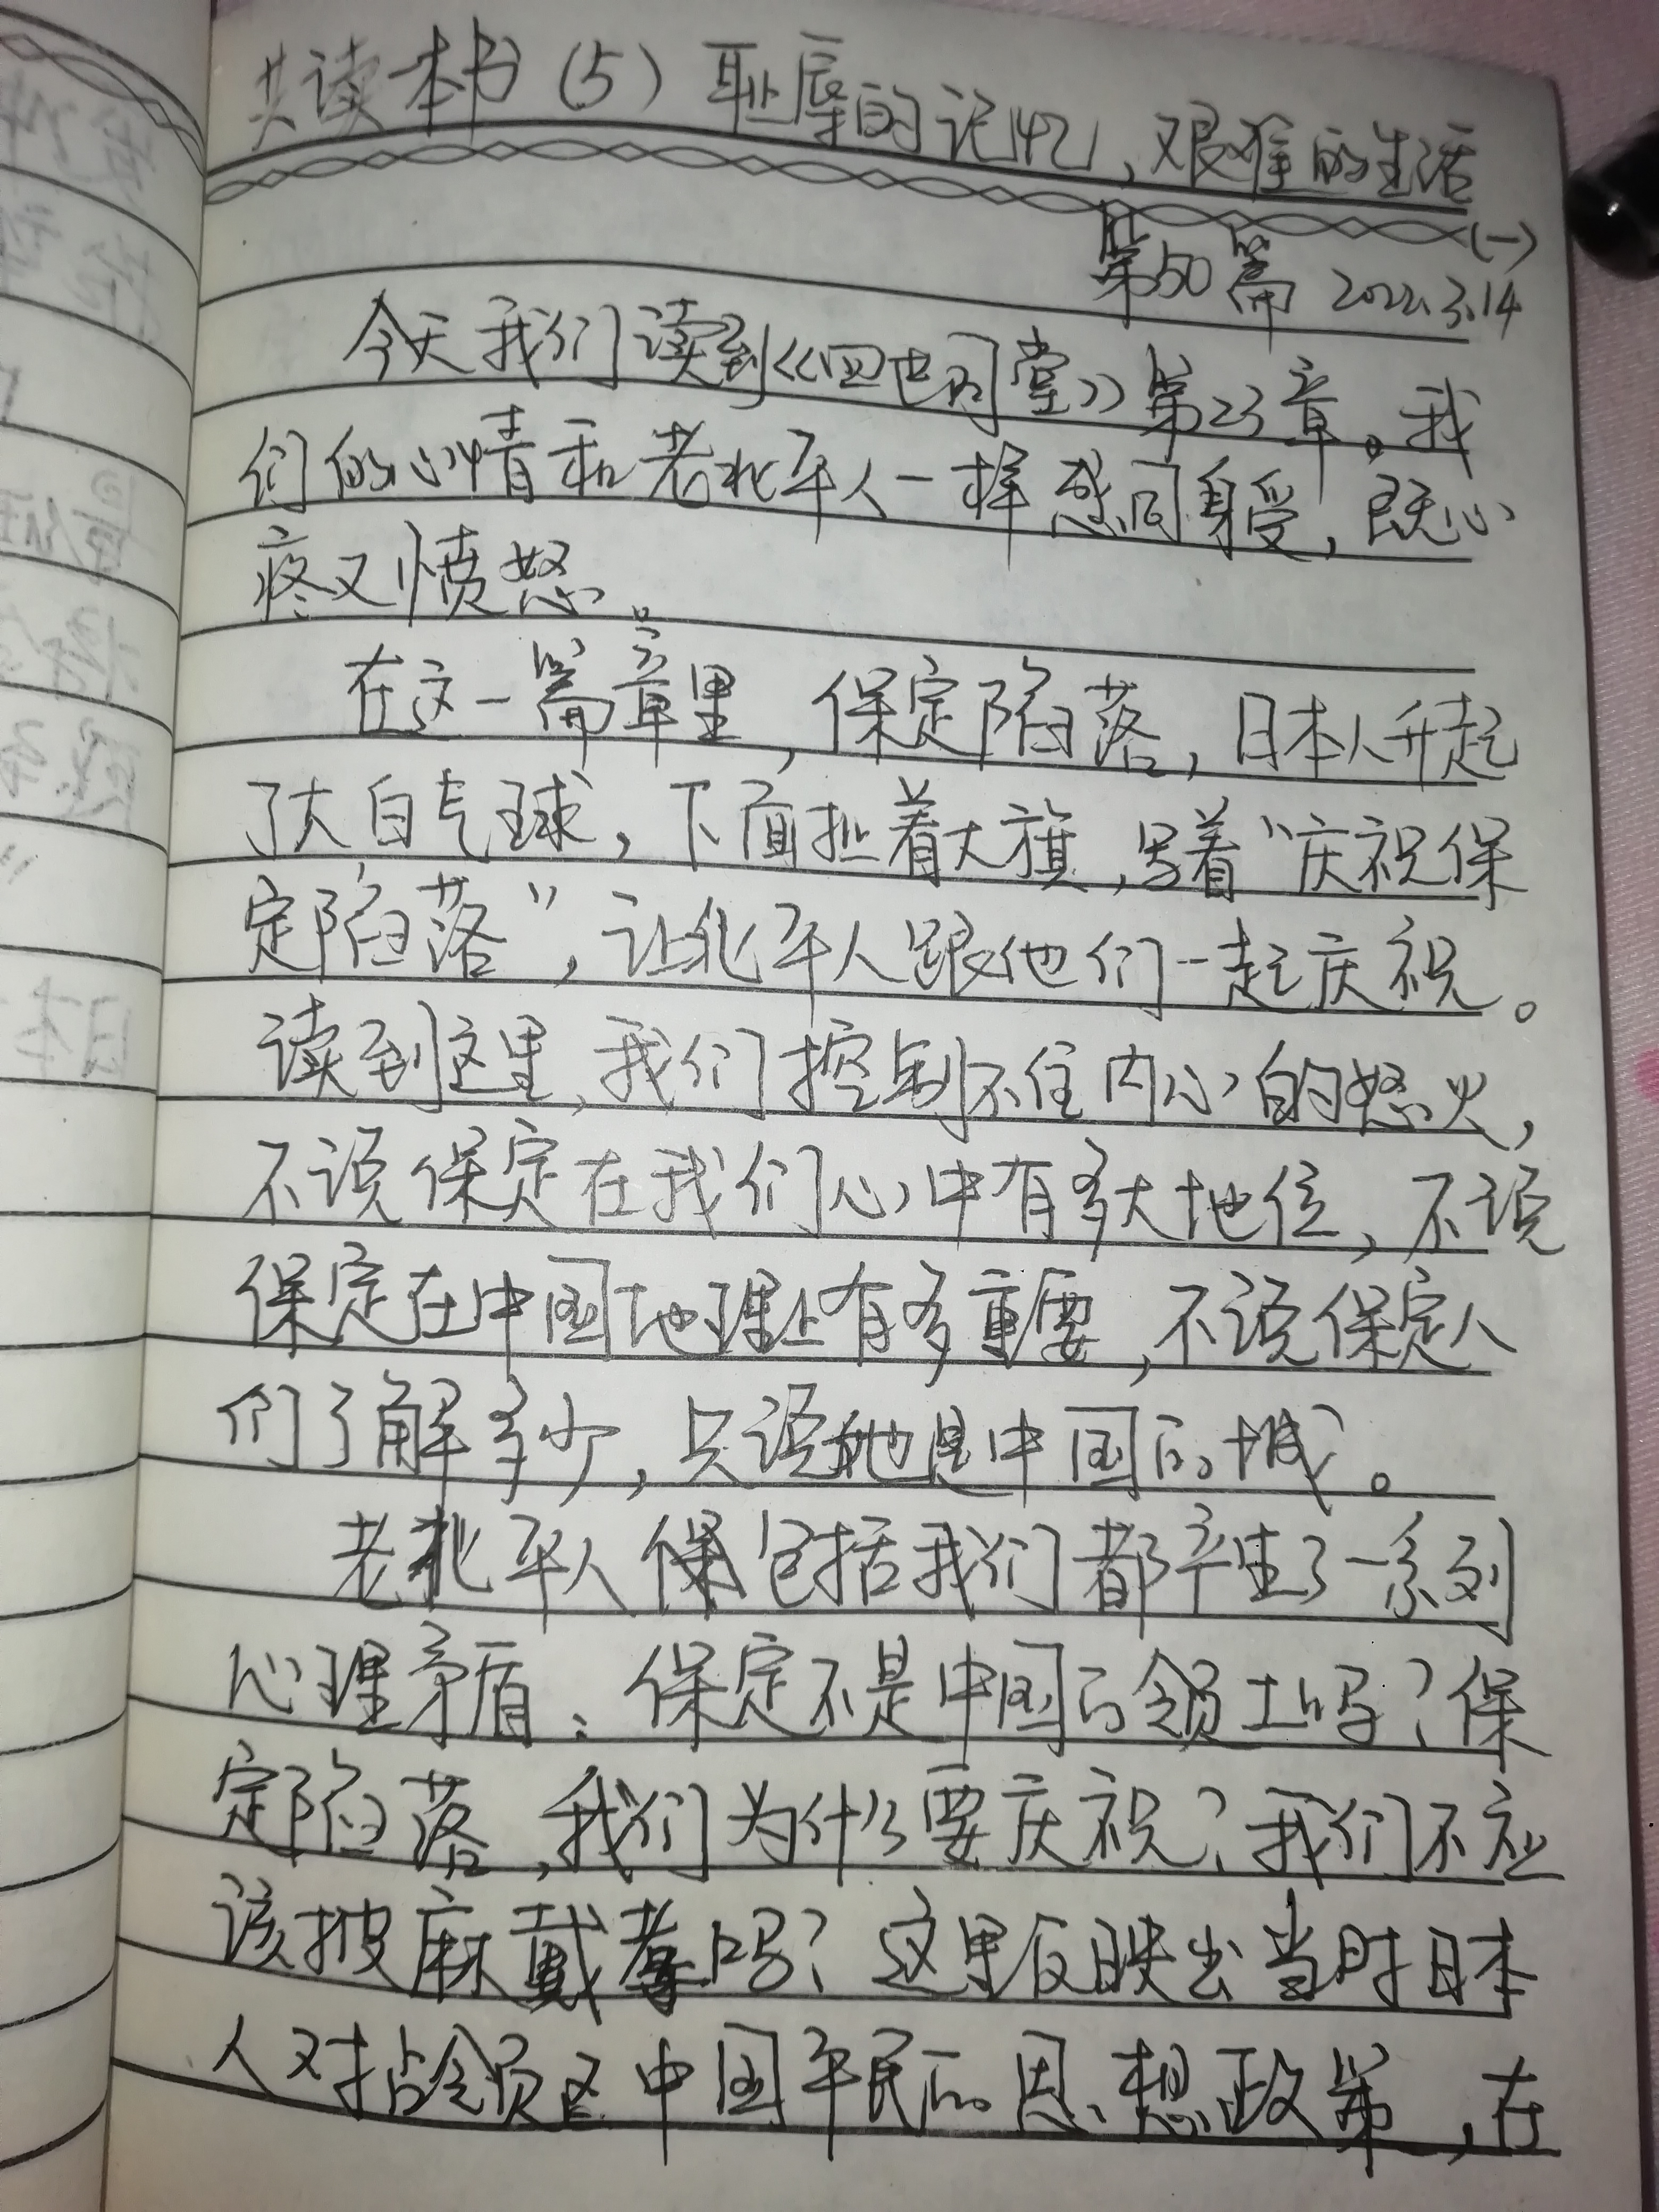 共读一本书（5）耻辱的记忆，艰难的生活
（一）
第50篇 2022.3.14
今天我们读到《四世同堂》第23章。我
们的心情和老北平人一样感同身受，既心
疼又愤怒。
在这一篇章里，保定陷落，日本人升起
了大白气球，下面扯着大旗，写着“庆祝保
定陷落”，让北平人跟他们一起庆祝。
读到这里，我们控制不住内心的怒火，
不说保定在我们心中有多大地位，不说
保定在中国地理上有多重要，不说保定人
们了解多少，只说她是中国的城。
老北平人包括我们都产生了一系列
心理矛盾：保定不是中国的领土吗？保
定陷落，我们为什么要庆祝？我们不应
该披麻戴孝吗？这里反映出当时日本
人对占领区中国平民的思想政策，在